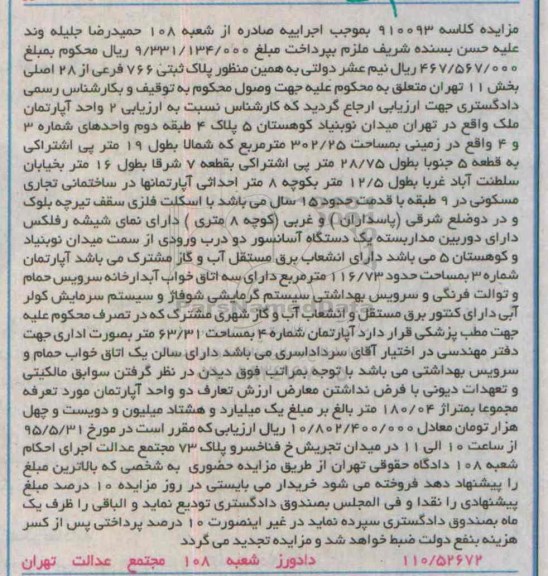 مزایده کلاسه ۹۱۰۰۹۳ بموجب اجراییه صادره از شعبه ۱۰۸ حمیدرضا جلیله وند
علیه حسن بسنده شریف ملزم بپرداخت مبلغ ۹/۳۳۱/۱۳۴/۰۰۰ ریال محکوم بمبلغ
۴۶۷/۵۶۷/۰۰۰ ریال نیم عشر دولتی به همین منظور پلاک ثبتی ۷۶۶ فرعی از ۲۸ اصلی
بخش ۱۱ تهران متعلق به محکوم علیه جهت وصول محکوم به توقیف و بکارشناس رسمی
دادگستری جهت ارزیابی ارجاع گردید که کارشناس نسبت به ارزیابی ۲ واحد آپارتمان
ملک واقع در تهران میدان نوبنیاد کوهستان ۵ پلاک ۴ طبقه دوم واحدهای شماره ۳
و ۴ واقع در زمینی بمساحت ۳۰۲/۲۵ مترمربع که شمالا بطول ۱۹ متر پی اشتراکی
به قطعه ۵ جنوبا بطول ۲۸/۷۵ متر پی اشتراکی بقطعه ۷ شرقا بطول ۱۶ متر بخیابان
سلطنت آباد غربا بطول ۱۲/۵ متر بکوچه ۸ متر احداثی آپارتمانها در ساختمانی تجاری
مسکونی در ۹ طبقه با قدمت حدود ۱۵ سال می باشد با اسکلت فلزی سقف تیرچه بلوک
و در دوضلع شرقی (پاسداران) و غربی (کوچه ۸ متری) دارای نمای شیشه رفلکس
دارای دوربین مداربسته یک دستگاه آسانسور دو درب ورودی از سمت میدان نوبنیاد
و کوهستان ۵ می باشد دارای انشعاب برق مستقل آب و گاز مشترک می باشد آپارتمان
شماره ۳ بمساحت حدود ۱۱۶/۷۳ مترمربع دارای سه اتاق خواب آبدارخانه سرویس حمام
و توالت فرنگی و سرویس بهداشتی سیستم گرمایشی شوفاژ و سیستم سرمایش کولر
آبی دارای کنتور برق مستقل و انشعاب آب و گاز شهری مشترک که در تصرف محکوم علیه
جهت مطب پزشکی قرار دارد آپارتمان شماره ۴ بمساحت ۶۳/۳۱ متر بصورت اداری جهت
دفتر مهندسی در اختیار آقای سرداداسری می باشد دارای سالن یک اتاق خواب حمام و
سرویس بهداشتی می باشد با توجه بمراتب فوق دیدن در نظر گرفتن سوابق مالکیتی
و تعهدات دیونی با فرض نداشتن معارض ارزش تعارف دو واحد آپارتمان مورد تعرفه
مجموعا بمتراژ ۱۸۰/۰۴ متر بالغ بر مبلغ یک میلیارد و هشتاد میلیون و دویست و چهل
هزار تومان معادل ۱۰/۸۰۲/۴۰۰/۰۰۰ ریال ارزیابی که مقرر است در مورخ ۹۵/۵/۳۱
از ساعت ۱۰ الی ۱۱ در میدان تجریش خ فناخسرو پلاک ۷۳ مجتمع عدالت اجرای احکام
شعبه ۱۰۸ دادگاه حقوقی تهران از طریق مزایده حضوری به شخصی که بالاترین مبلغ
را پیشنهاد دهد فروخته می شود خریدار می بایستی در روز مزایده ۱۰ درصد مبلغ
پیشنهادی را نقدا و فی المجلس بصندوق دادگستری تودیع نماید و الباقی را ظرف یک
ماه بصندوق دادگستری سپرده نماید در غیر اینصورت ۱۰ درصد پرداختی پس از کسر
هزینه بنفع دولت ضبط خواهد شد و مزایده تجدید می گردد
۱۱۰/۵۲۶۷۲ دادورز شعبه ۱۰۸ مجتمع عدالت تهران